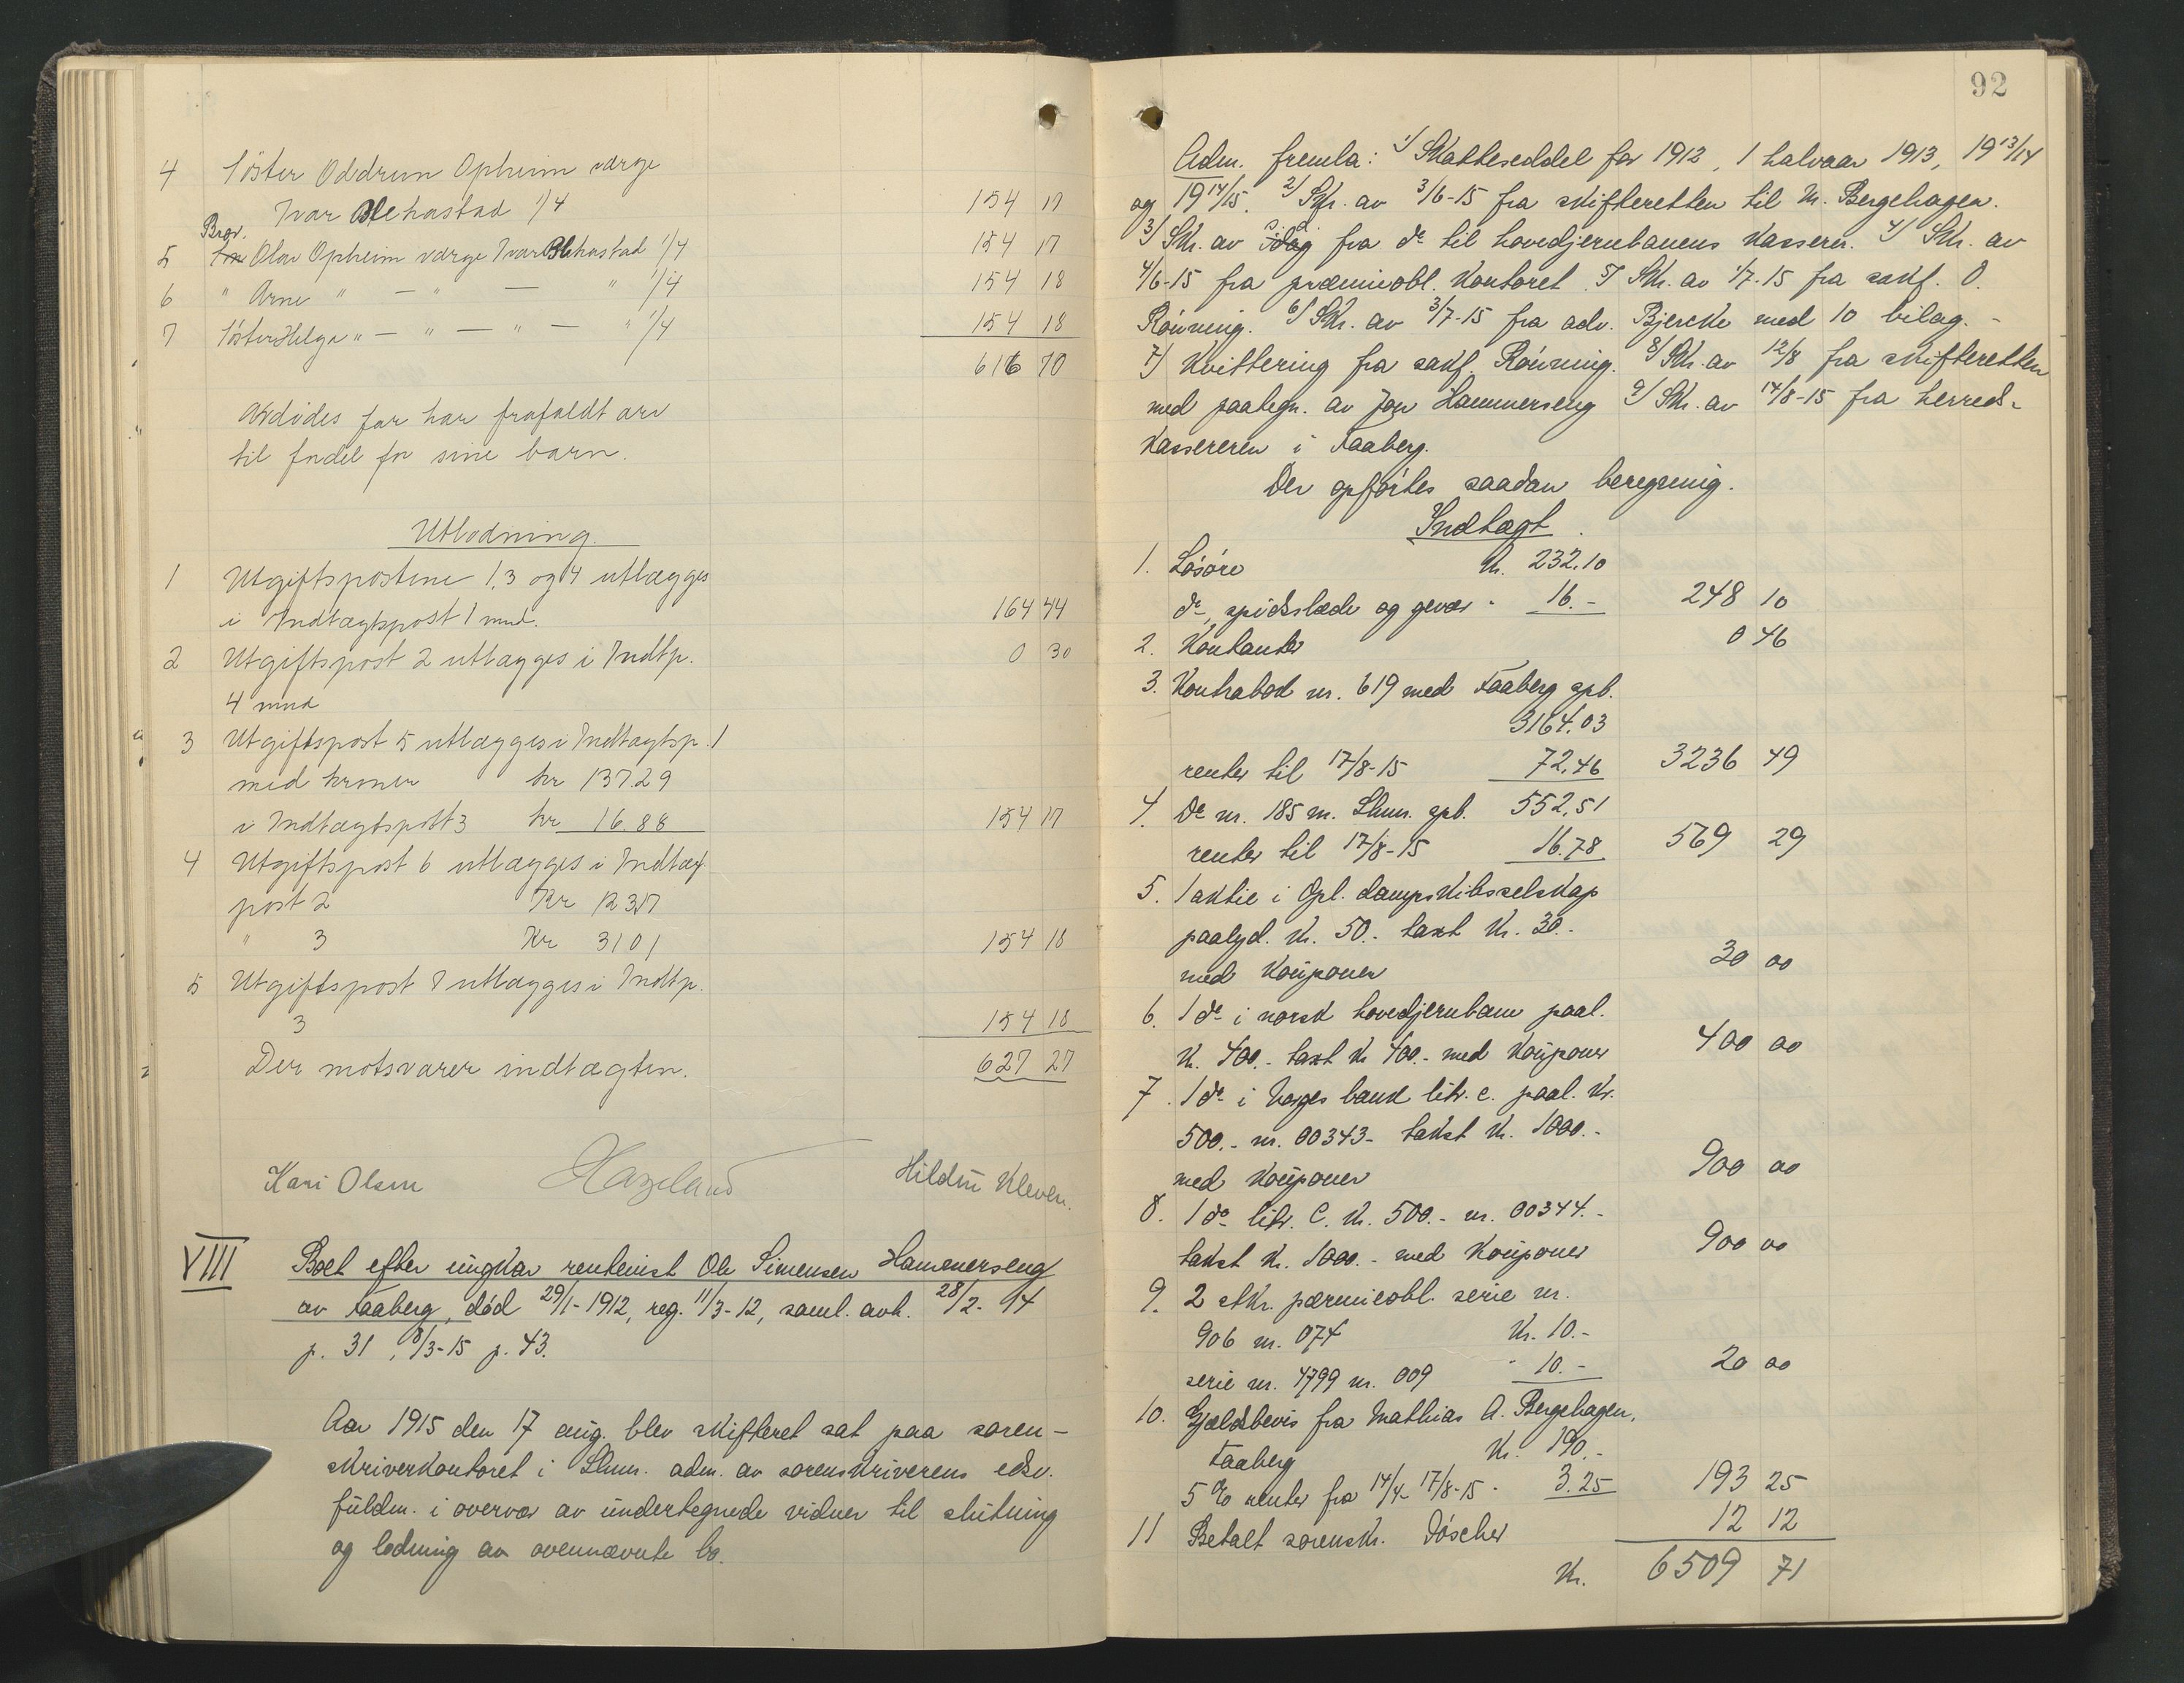 4 Söster Oddrun Opheim værge
Ivar Blekastad 1/4 154 17
Bror.
5 Olav Opheim værge Ivar Blekastad 1/4 154 17
6 " Arne " — " — " 1/4 154 18
7 Söster Helga " — " — " — " 1/4 154 18
616 70
Avdödes far har frafaldt arv
til fordel for sine barn.
Utlodning.
1 Utgiftspostene 1, 3 og 4 utlægges
i Indtægtspost 1 med. 164 44
2 Utgiftspost 2 utlægges i Indtp. 0 30
4 med
3 Utgiftspost 5 utlægges i Indtægtsp. 1
med kroner kr 137.29
i Indtægtspost 3 kr 16.88 154 17
4 Utgiftspost 6 utlægges i Indtægt
post 2 Kr 123.17
" 3 Kr 31 01 154 18
5 Utgiftspost 7 utlægges i Indtp.
3 154 18
Der motsvarer indtægten. 627 27
Kari Olsen Hazeland Hildur Kleven.
VIII Boet efter ungkar rentenist Ole Simensen Hammerseng
av Faaberg, död 29/1-1912, reg. 11/3-12, saml. avh. 28/2-14
p. 31, 8/3-15 p. 43.
Aar 1915 den 17 aug. blev skifteret sat paa soren-
skriverkontoret i Lhmr. adm. av sorenskriverens edsv.
fuldm. i overvær av undertegnede vidner til slutning
og lodning av ovennævnte bo.
92
Adm. fremla: 1/ Skatteseddel for 1912, 1 halvaar 1913, 19 13/14
og 19 14/15. 2/ Skr. av 3/6-15 fra skifteretten til M. Bergehagen.
3/ Skr. av s. d. fra do til hovedjernbanens kasserer. 4/ Skr. av
4/6-15 fra præmieobl. kontoret. 5/ Skr. av 1/7-15 fra sakf. O.
Rönning. 6/ Skr. av 3/7-15 fra adv. Bjercke med 10 bilag. -
7/ Kvittering fra sakf. Rönning. 8/ Skr. av 12/8 fra skifteretten
med paategn. av Jon Hammerseng 9/ Skr. av 14/8-15 fra herreds-
kassereren i Faaberg.
Der opförtes saadan beregning.
Indtægt.
1. Lösöre kr. 232.10
do, spidsslæde og gevær " 16.- 248 10
2. Kontanter 0 46
3. Kontrabok nr. 619 med Faaberg spb.
3164.03
renter til 17/8-15 72.46 3236 49
4. Do nr. 185 m. Lhmr. spb. 552.51
renter til 17/8-15 16.78 569 29
5. 1 aktie i Opl. dampskibsselskap
paalyd. kr. 50.- takst kr. 30.-
med kouponer 30 00
6. 1 do i norsk hovedjernbane paal.
kr. 400.- takst kr 400.- med kouponer 400 00
7. 1 do i Norges bank litr. c. paal. kr.
500.- nr. 00343- takst kr. 1000.-
med kouponer 900 00
8. 1 do litr. C. kr. 500.- nr. 00344.-
takst kr. 1000.- med kouponer 900 00
9. 2 stkr. pærmieobl. serie nr.
906 nr. 074 kr. 10.-
serie nr. 4799 nr. 009 " 10.- 20 00
10. Gjældsbevis fra Mathias A. Bergehagen,
Faaberg kr. 190.-
5 % renter fra 14/4-17/8-15 " 3.25 193 25
11 Betalt sorenskr. Döscher 12 12
kr. 6509 71